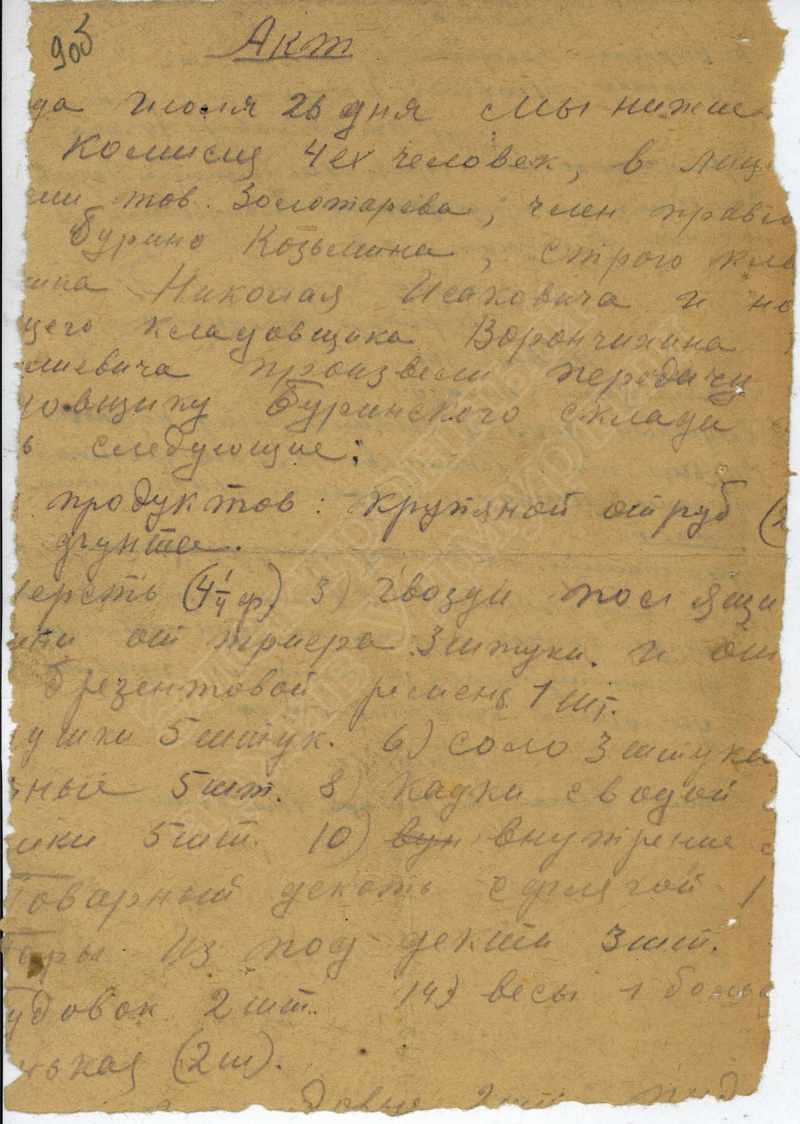 905
Акт
да июля 26 дня мы ниже
Комисия 4ех человек, в лице
ли тов. Золотарева, член правл
Бурино Козьмина, строго кла
ика Николая Исаковича и на
щего кладовщика Ворончихина
лиевича произвели передачу
довщику Буринского склади
ь следующие:
продуктов: крупяной отруб (2
фунта.
ерсть (4 1/4 ф) 3) Гвозди пос ящи
ики от триера 3 штуки. и от
брезентовой ремень 1 шт.
ушки 5 штук. 6) соло 3 штуки
ные 5 шт. 8) Кадки с водой
ики 5 шт. 10) внутрение
Товарный декоть с флягой 1
Тары из под декти 3 шт.
удовок 2 шт. 14) весы 1 больш
нькая (2 ш).
2 шт. под